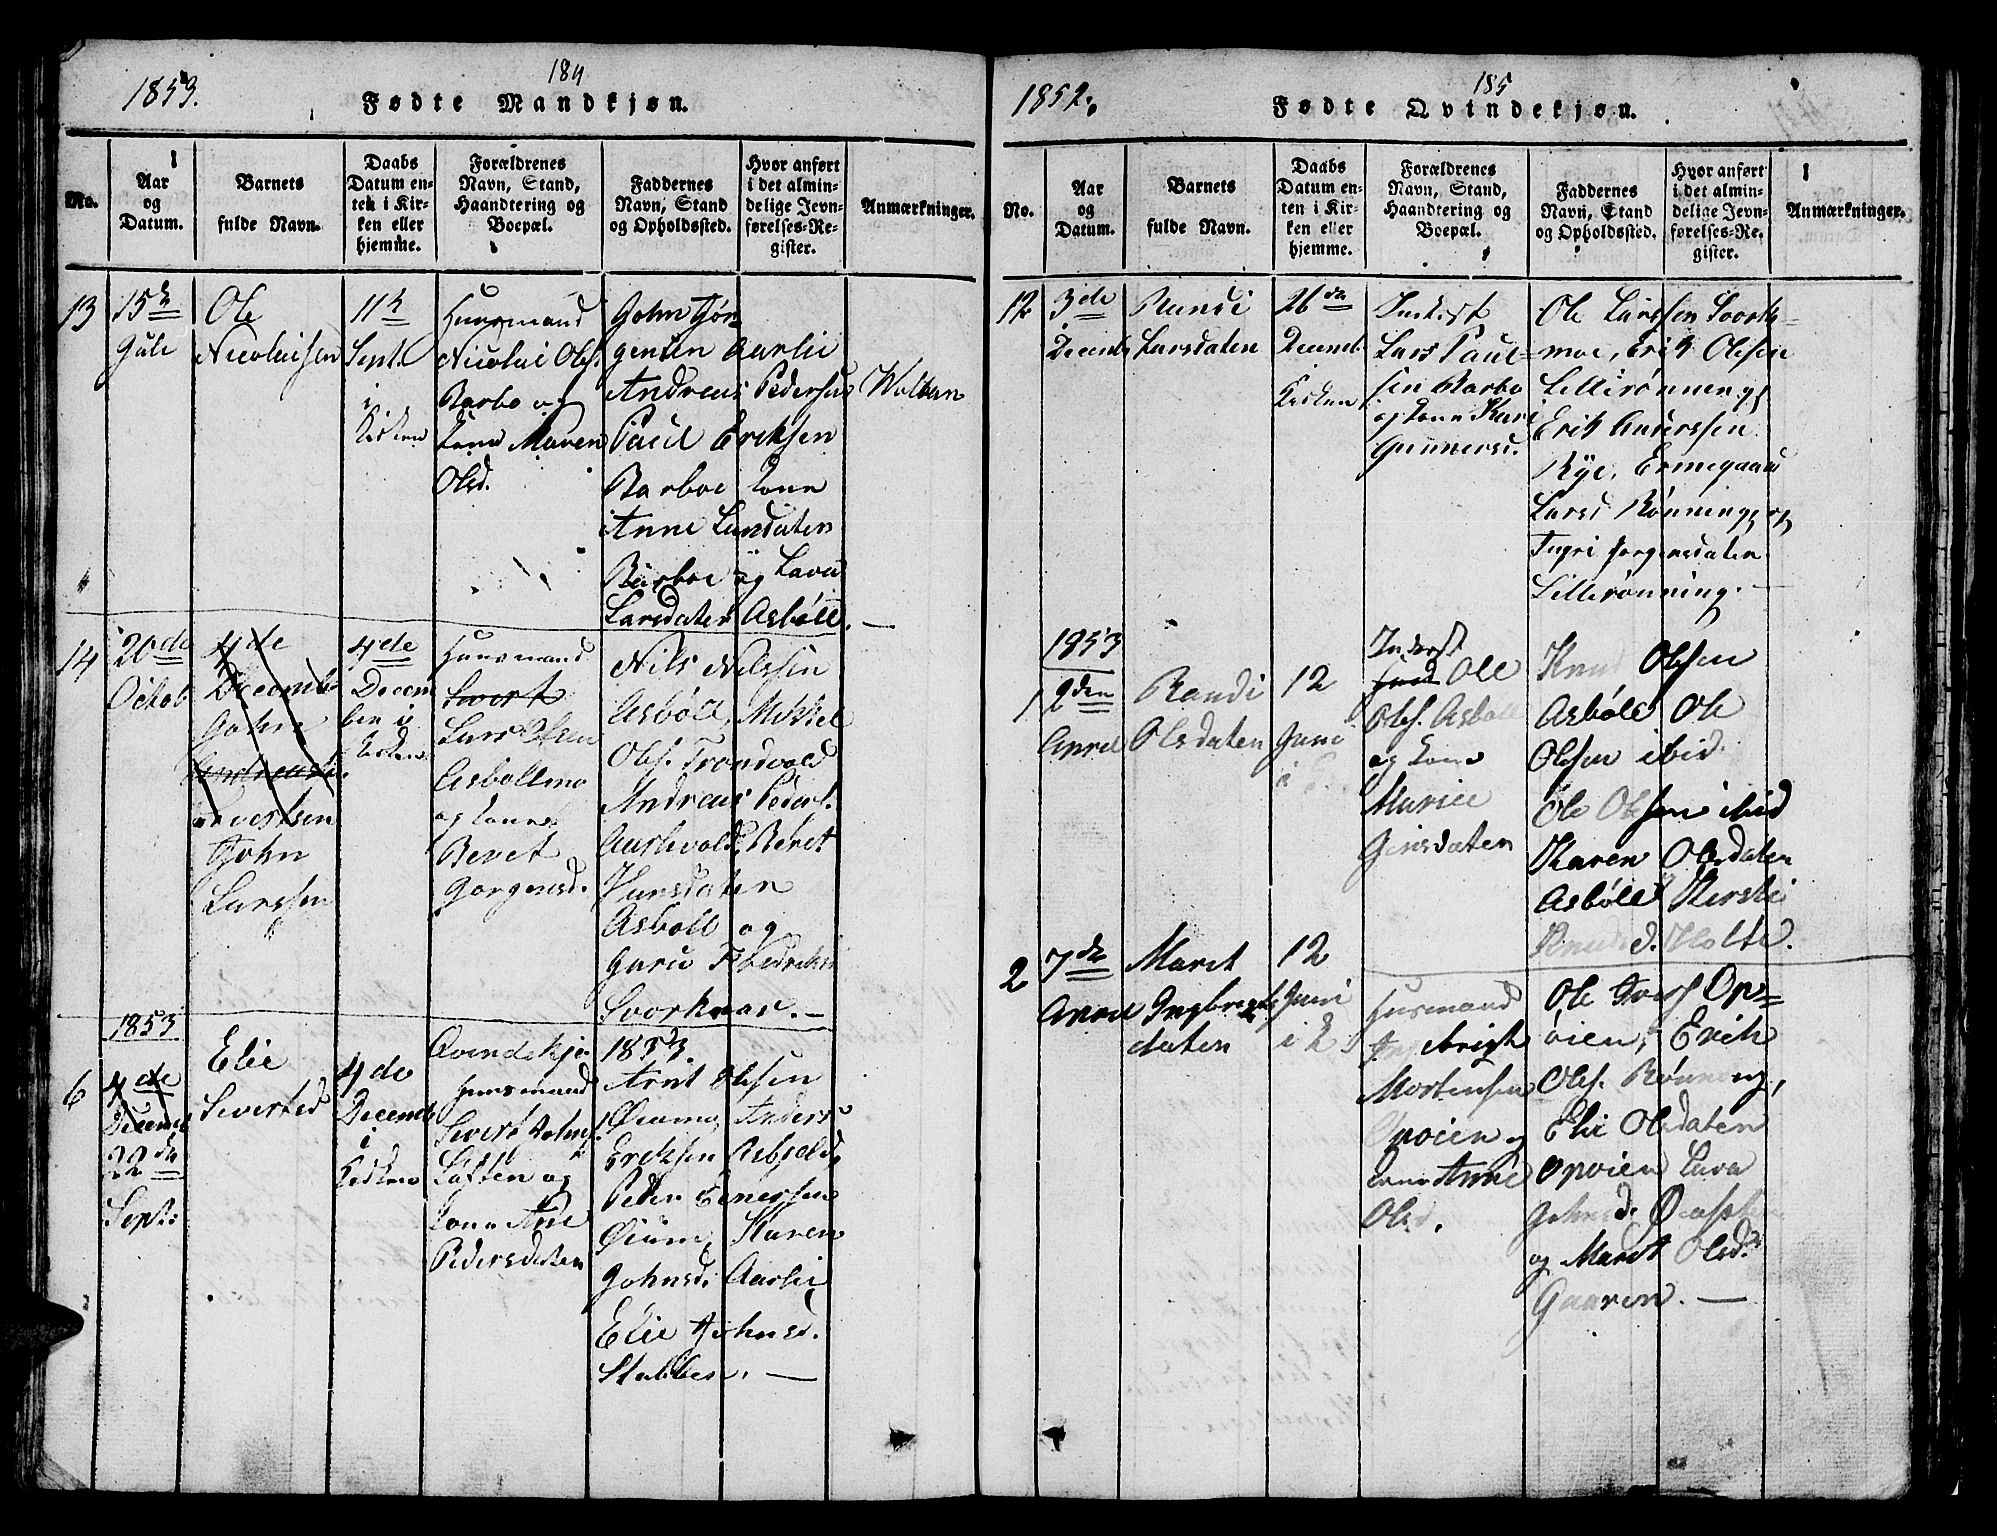 1853.
184
Fødte Mandkjøn.
No.
Aar
og
Datum.
Barnets
fulde Navn.
Daabs
Datum en-
ten i Kir-
ken eller
hjemme.
Forældrenes
Navn, Stand,
Haandtering og
Boepæl.
Faddernes
Navn, Stand
og Opholdssted.
Hvor anført
i det almin-
delige Jevn-
førelses-Re-
gister.
Anmærkninger.
13
15de
Juli
Ole
Nicolaisen
11te
Sept.
i
Kirken
Huusmand
Nicolai Ols.
Barbo og
Kone Maren
Olsd.
John Jør-
gensen Aarlie
Andreas Pedersen
Paul Eriksen
Barboe Kone
Anne Larsdaten
Barboe og Lava
Larsdaten Asbøll. —
14
20de
Octob
4de
Decemb
John
Sivertsen
John
Larssen
4de
Decem
ber i
Kirken
Huusmand
Sivert
Lars Olsen
Asbøllmo
og Kone
Beret
Jørgensd.
Nils Nilssen
Asbøll, Mikkel
Ols. Trondvold
Andreas Peders.
Aashvold, Beret
Hansdaten
Asbøll og
Guru Fredriks
Svorkmoe. —
1853
6
4de
Decemb
22de
Sept.
Elie
Sivertsd
4de
Decemb
i
Kirken
Qvindekjø
Huusmand
Sivert Johns.
Løften og
Kone Ane
Pedersdaten
1853.
Arnt Olsen
Øiumo, Anders
Eriksen Asbjeld,
Peder Einersen
Øium, Karen
Johnsd. Aarlie
Elie Johnsd.
Stubben. —
1852.
185
Fødte Qvindekjøn.
No.
Aar
og
Datum.
Barnets
fulde Navn.
Daabs
Datum en-
ten i Kir-
ken eller
hjemme.
Forældrenes
Navn, Stand,
Haandtering og
Boepæl.
Faddernes
Navn, Stand
og Opholdssted.
Hvor anført
i det almin-
delige Jevn-
førelses-Re-
gister.
Anmærkninger.
12
3de
Decemb
Randi
Larsdaten
26de
Decemb
Kirken
Inderst
Lars Paul-
sen Barbo
og Kone Kari
Gunnersd.
Ole Larssen Svork-
moe, Erik Olssen
Lillerønning,
Erik Anderssen
Rye, Ermegaard
Larsd Rønning og
Ingri Jørgensdaten
Lillerønning. —
1853
1
2den
April
Randi
Olsdaten
12
Juni
i
Inderst
Ole
Ols. Asbøll
og Kone
Marie
Jensdaten
Knud Olssen
Asbøll Ole
Olssen ibid.
Ole Olssen ibid
Karen Olsdaten
Asbøll Kirsti
Knudsd. Holte.
2
7de
April
Maret
Ingbrigts
daten
12
Juni
i K.
Husmand
Ingebrigt
Mortensen
Opøien og
Kone Anne
Olsd.
Ole Ivers. Op=
øien, Erik
Ols. Rønning,
Elie Olsdaten
Opøien Lava
Johnsd.
og Maret Olsd.
Gaaren. —